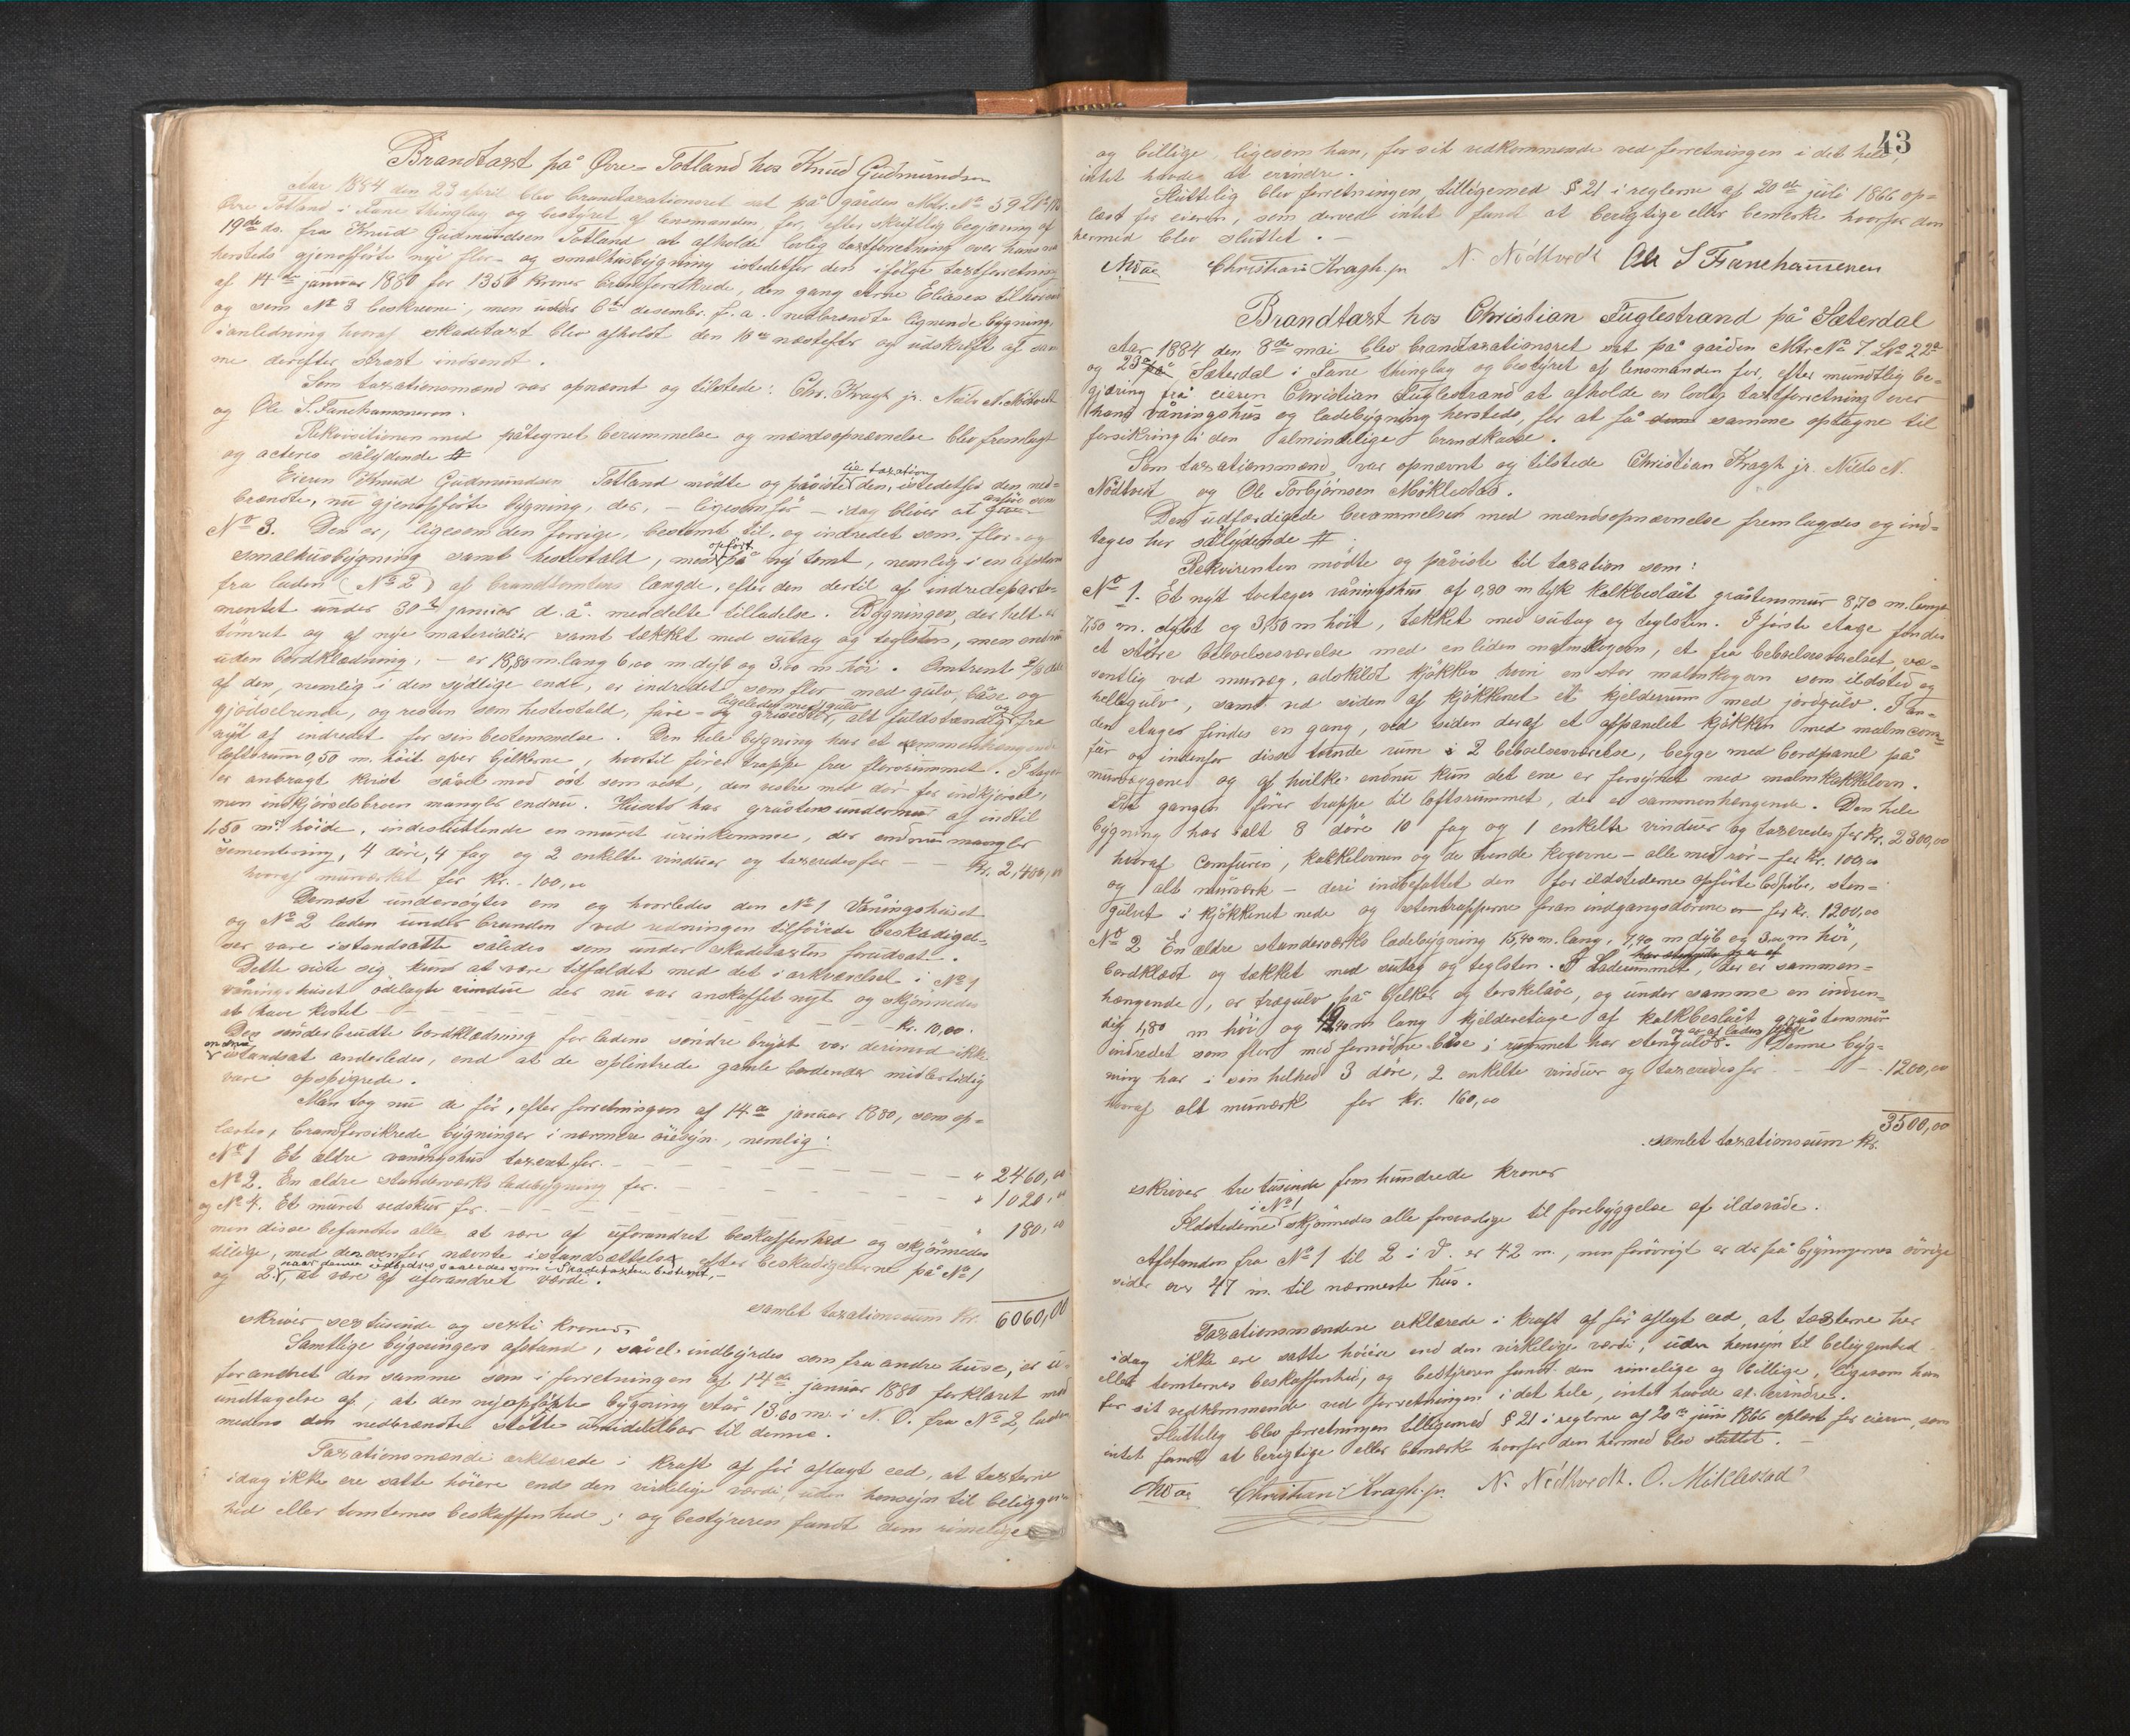 Brandtaxt på Øvre-Totland hos Knud Gudmundsen
Aar 1884 den 23 april blev brandtaxationsret sat på gården Mtr. No 59
Øvre Totland i Fane thinglag og bestyret af lensmanden for, efter skriftlig begjæring af
19de ds. fra Knud Gudmundsen Totland at afholde lovlig taxtforretning over hans
hersteds gjenopførte nye flor- og smalhusbygning istedetfor den ifølge taxtforretning
af 14de januar 1880 for 1350 kroner brandforsikrede, den gang Arne Eliasen tilhørende
og som No 3 beskrevne, men under 6te desembr. f. a. nedbrændte lignende bygning,
i anledning hvoraf skadetaxt blev afholdt den 10de næstefter og udskrift af sam-
me derefter straxt indsendt.
Som taxationsmænd var opnævnt og tilstede: Chr. Kragh jr. Nils N. Nødtvedt
og Ole S. Fanehammeren.
Rekvisitionen med påtegnet berammelse og mændsopnævnelse blev fremlagt
og acteres sålydende #
Eieren Knud Gudmundsen Totland mødte og påviste til taxation den, istedetfor den ned-
brændte, nu gjenopførte bygning, der, - ligesom før - idag bliver at anføre som
No 3. Den er, ligesom den forrige, bestemt til, og indredet som flor- og
smalhusbygning samt hestestald, men opført på ny tomt, nemlig i en afstand
fra laden (No 2) af brandtomtens længde, efter den dertil af indredeparte-
mentet under 30te januar d. å. meddelte tilladelse. Bygningen, der helt er
tømret og af nye materialier samt tækket med sutag og teglsten, men endnu
uden bordklædning, - er 18,80 m. lang 6,00 m dyb og 3,10 m. høi. Omtrent 2/3 dele
af den, nemlig i den sydlige ende, er indredet som flor med gulv, båse og
gjødselrende, og resten som hestestald, fare- og grisestier, ligeledes med gulv alt fuldstændigt og fra
nyt af indredet for sin bestemmelse. Den hele bygning har et sammenhængende
loftsrum 0,50 m. høit over bjelkerne, hvortil fører trappe fra florsrummet. I taget
er anbragt kvist såvel mod øst som vest, den vestre med dør for indkjørsel,
men indkjørselsbroen mangler endnu. Huset har gråstens undermur af indtil
1,50 m. høide, indesluttende en muret urinkumme, der endnu mangler
sementering, 4 døre, 4 fag og 2 enkelte vinduer og taxeredes for - - Kr. 2,400,00
hvoraf murværket for Kr. 100,00
Dernæst undersøgtes om og hvorledes den No 1 Våningshuset
og No 2 laden under branden ved redningen tilføiede beskadigel-
ser vare istandsatte således som under skadetaxten forudsat.
Dette viste sig kun at være tilfældet med det i arkværelset i No 1
våningshuset ødelagte vindue der nu var anskaffet nyt og skjønnedes
at have kostet - - - - - - kr. 10,00.
Den sønderbrudte bordklædning for ladens søndre bryst var derimod ikke
endnu istandsat anderledes, end at de splintrede gamle bordender midlertidig
vare opspigrede.
Man tog nu de før, efter forretningen af 14de januar 1880, som op-
læstes, brandforsikrede bygninger i nærmere øiesyn, nemlig:
No 1 Et ældre våningshus taxeret for. - - - - - " 2460,00
No 2. En ældre standerværks ladebygning for. - - - - " 1020,00
og No 4. Et muret vedskur for. - - - - - " 180,00
men disse befandtes alle at være af uforandret beskaffenhed og skjønnedes
tillige, med den ovenfor nævnte istandsættelse efter beskadigelserne på No 1
og 2, naar denne udbedres saaledes som i Skadetaxten bestemt, - at være af uforandret værdi.
samlet taxationssum Kr. 6060,00
skriver sextusinde og sexti kroner.
Samtlige bygningers afstand, såvel indbyrdes som fra andre huse, er u-
forandret den samme som i forretningen af 14de januar 1880 forklaret med
undtagelse af, at den nyopførte bygning står 13.00 m. i N. O. fra No 2, laden
medens den nedbrændte stødte umiddelbar til denne.
Taxationsmændene erklærede i kraft af før aflagt eed, at taxterne
idag ikke ere satte høiere end den virkelige værdi, uden hensyn til beliggen-
hed eller tomternes beskaffenhed, og bestyreren fandt dem rimelige
43
og billige, ligesom han, for sit vedkommende ved forretningen i det hele,
intet havde at erindre.
Sluttelig blev forretningen, tilligemed § 21 i reglerne af 20de juli 1866 op-
læst for eieren, som derved intet fandt at berigtige eller bemerke hvorfor den
hermed blev sluttet. -
Christian Kragh. jr. N. Nödtvedt Ole S Fanehammeren
Brandtaxt hos Christian Fuglestrand på Sæterdal
Aar 1884 den 8de mai blev brandtaxationsret sat på gården Mtr. No 7 Lno 22a
og 23a på Sæterdal i Fane thinglag og bestyret af lensmanden for, efter mundtlig be-
gjæring fra eieren Christian Fuglestrand at afholde en lovlig taxtforretning over
hans våningshus og ladebygning hersteds, for at få dem samme optagne til
forsikring i den almindelige brandkasse.
Som taxationsmænd var opnævnt og tilstede Christian Kragh jr. Nils N.
Nödtvedt og Ole Torbjørnsen Möklestad.
Den udfærdigede berammelse med mændsopnævnelse fremlagdes og ind-
tages her sålydende #
Rekvirenten mødte og påviste til taxation som:
No 1. Et nyt toetages våningshus af 0,80 m tyk kalkbeslåt gråstensmur 8,70 m. lang
7,50 m. dybt og 3,50 m høit, tækket med sutag og teglsten. I første etage findes
et større beboelsesværelse med en liden malmkogeovn, et fra beboelsesværelset væ-
sentlig ved murvæg, adskildt kjøkken hvori en stor malmkogovn som ildsted og
hellegulv, samt ved siden af kjøkkenet et kjelderrum med jordgulv. I an-
den etages findes en gang, ved siden deraf et afpanelet kjøkken med malm com-
fur og indenfor disse tvende rum i 2 beboelsesværelse, begge med bordpanel på
murvæggene og af hvilke endnu kun det ene er forsynet med malmkakkelovn.
Fra gangen fører trappe til loftsrummet, der er sammenhængende. Den hele
bygning har ialt 8 døre 10 fag og 1 enkelte vinduer og taxeredes for Kr. 2300,00
hvoraf comfuren, kakkelovnen og de tvende kogovne - alle med rør - for Kr. 100,00
og alt murværk - deri indbefattet den for ildstederne opførte bospibe, sten-
gulvet i kjøkkenet nede og stentrapperne foran indgangsdørene for Kr. 1200,00
No 2 En ældre standerværks ladebygning 15,40 m. lang, 7,40 m dyb og 3,00 m høi,
bordklædt og tækket med sutag og teglsten. I laderummet, der er sammen-
hængende, er trægulv på bjelker og terskelåve, og under samme en indven-
dig 1,80 m høi og m lang kjelderetage af kalkbeslåt gråstensmur
indredet som flor med fornødne båse i rummet har stengulv og er af ladens dybde. Denne byg-
ning har i sin helhed 3 døre, 2 enkelte vinduer og taxeredes for - - - 1200,00
hvoraf alt murværk for kr. 160,00
samlet taxationssum kr. 3500,00
skriver tre tusinde fem hundrede kroner
Ildstederne i No 1 skjønnedes alle forsvarlige til forebyggelse af ildsvåde.
Afstanden fra No 1 til 2 i V. er 42 m., men forøvrigt er der på bygningernes øvrige
sider over 47 m. til nærmeste hus.
Taxationsmændene erklærede i kraft af før aflagt eed, at taxterne her
idag ikke ere satte høiere end den virkelige værdi, uden hensyn til beliggenhed
eller tomternes beskaffenhed, og bestyreren fandt dem rimelige og billige, ligesom han
for sit vedkommende ved forretningen i det hele, intet havde at erindre.
Sluttelig blev forretningen tilligemed § 21 i reglerne af 20de juni 1866 oplæst for eieren, som
intet fandt at berigtige eller bemærke hvorfor den hermed blev sluttet. -
Christian Kragh. jr. N. Nödtvedt. O. Möklestad